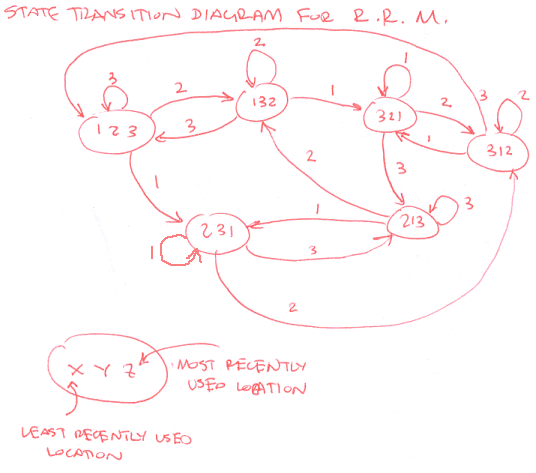 STATE TRANSITION DIAGRAM FOR R.R.M.
2
1
3
2
1
2
3
2
123
132
321
312
3
1
1
2
3
3
1
231
213
1
3
2
X Y Z
MOST RECENTLY
USED LOCATION
LEAST RECENTLY USED
LOCATION